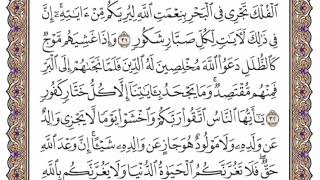 ٱلۡفُلۡكَ تَجۡرِي فِي ٱلۡبَحۡرِ بِنِعۡمَتِ ٱللَّهِ لِيُرِيَكُم مِّنۡ ءَايَٰتِهِۦٓۚ إِنَّ
فِي ذَٰلِكَ لَأٓيَٰتٖ لِّكُلِّ صَبَّارٖ شَكُورٖ ٣١ وَإِذَا غَشِيَهُم مَّوۡجٞ
كَٱلظُّلَلِ دَعَوُاْ ٱللَّهَ مُخۡلِصِينَ لَهُ ٱلدِّينَ فَلَمَّا نَجَّىٰهُمۡ إِلَى ٱلۡبَرِّ
فَمِنۡهُم مُّقۡتَصِدٞۚ وَمَا يَجۡحَدُ بِـَٔايَٰتِنَآ إِلَّا كُلُّ خَتَّارٖ كَفُورٖ
٣٢ يَٰٓأَيُّهَا ٱلنَّاسُ ٱتَّقُواْ رَبَّكُمۡ وَٱخۡشَوۡاْ يَوۡمٗا لَّا يَجۡزِي وَالِدٌ
عَن وَلَدِهِۦ وَلَا مَوۡلُودٌ هُوَ جَازٍ عَن وَالِدِهِۦ شَيۡـًٔاۚ إِنَّ وَعۡدَ ٱللَّهِ
حَقّٞۖ فَلَا تَغُرَّنَّكُمُ ٱلۡحَيَوٰةُ ٱلدُّنۡيَا وَلَا يَغُرَّنَّكُم بِٱللَّهِ